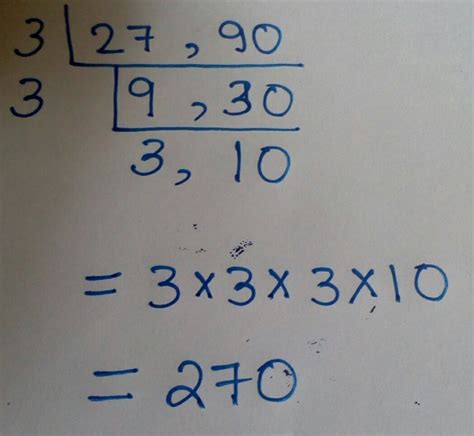 3 | 27 , 90
3 | 9 , 30
3 , 10
= 3 × 3 × 3 × 10
= 270